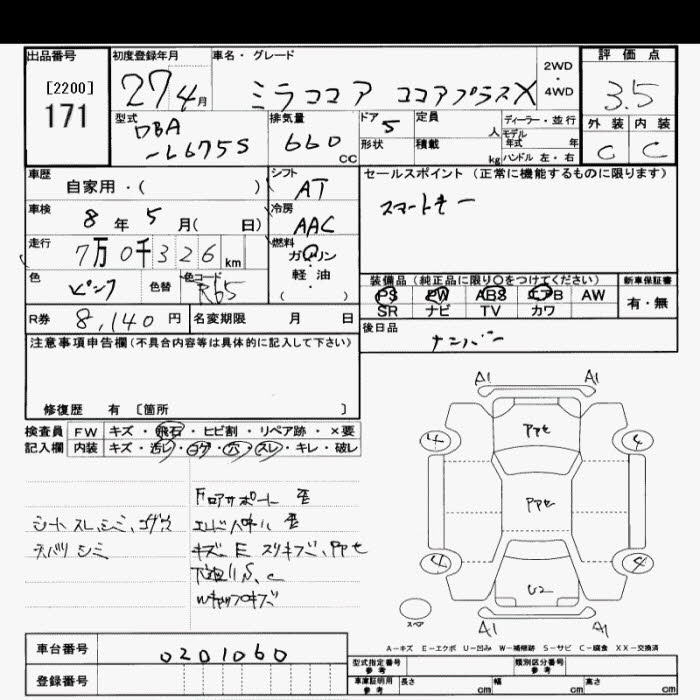 出品番号 初度登録年月 車名・グレード 評価点
[2200]
171
27 4月 ミラココア ココアプラスX 2WD・4WD 3.5
型式 排気量 ドア 定員 ディーラー・並行 外装 内装
DBA 660 CC 5 人 モデル年式 年 C C
-L675S 形状 積載 kg ハンドル 左・右
車歴 シフト セールスポイント(正常に機能するものに限ります)
自家用・( ) AT スマートキー
車検 冷房
8年5月( 日) AAC
走行 燃料
7万0千326km ガソリン
軽・油
( )
色 ピンク 色替 色コード R65
装備品(純正品に限り○をつけてください) 新車保証書
PS PW ABS エアB AW 有・無
SR ナビ TV カワ
R券 8,140円 名変期限 月 日 後日品
ナンバー
注意事項申告欄(不具合内容等は具体的に記入して下さい)
修復歴 有 〔箇所 〕
検査員 FW キズ・飛石・ヒビ割・リペア跡・×要
記入欄 内装 キズ・汚レ・コゲ・穴・スレ・キレ・破レ
A1 A1
4 PPセ 4
PPセ
4 4
U2
スペア A1 A1
シートスレ,シミ,コゲ穴
天バリシミ
Fロアサポート歪
エンドパネル歪
キズ E スリキズ,PPセ
下廻りS,C
Wキャップキズ
A-キズ E-エクボ U-凹み W-補修跡 S-サビ C-腐食 XX-交換済
車台番号 0201060
登録番号
型式指定番号 参考 類別区分番号 参考
車庫証明用 参考 長さ cm 幅 cm 高さ cm